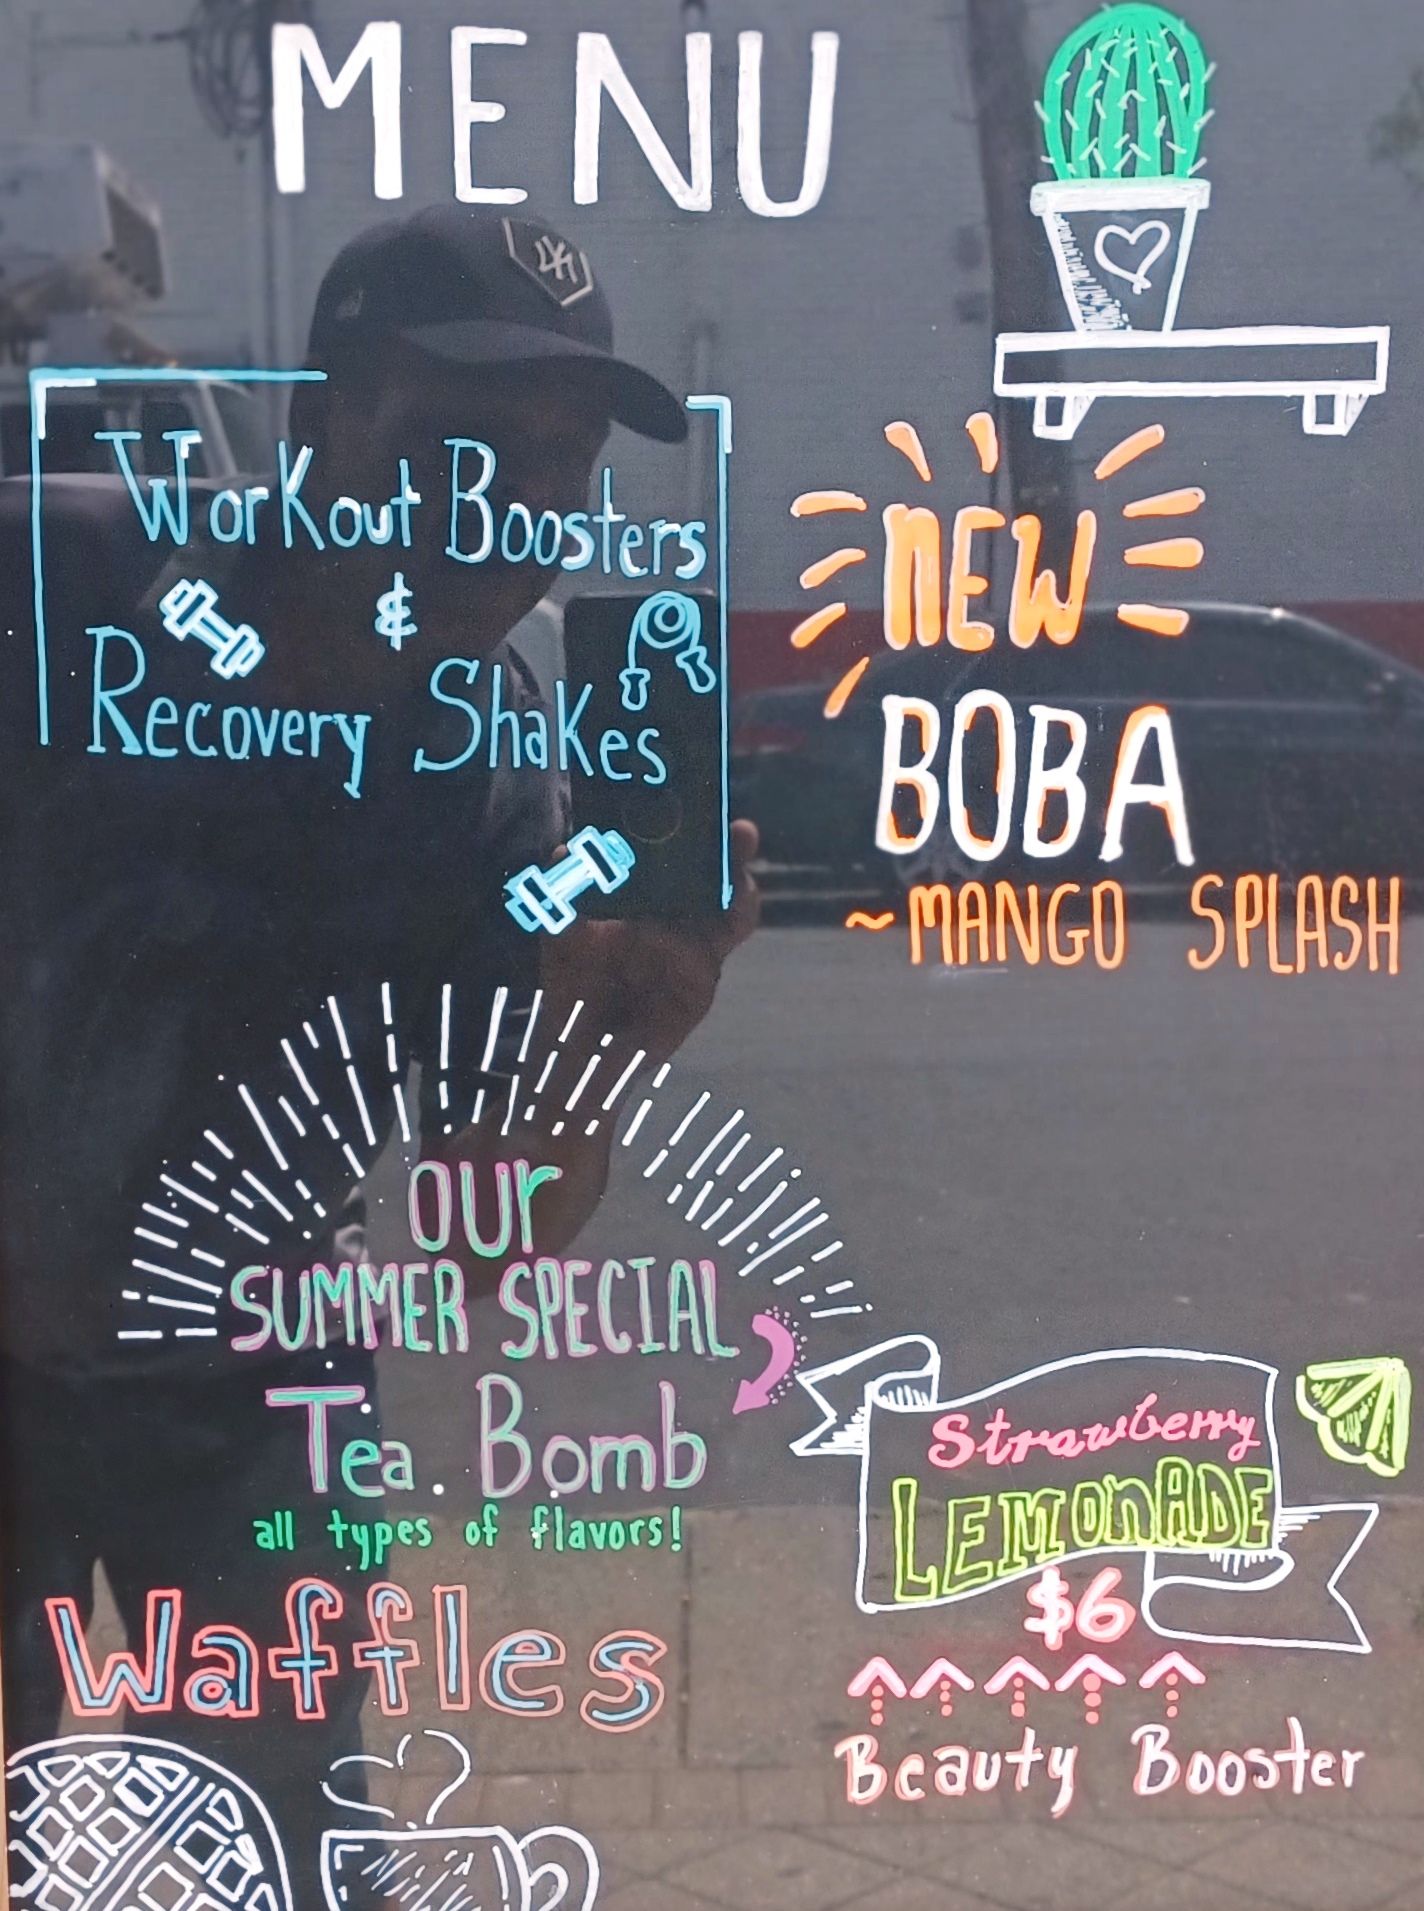 MENU
Workout Boosters
&
Recovery Shakes
NEW
BOBA
~MANGO SPLASH
our
SUMMER SPECIAL
Tea Bomb
all types of flavors!
Strawberry
LEMONADE
$6
Beauty Booster
Waffles